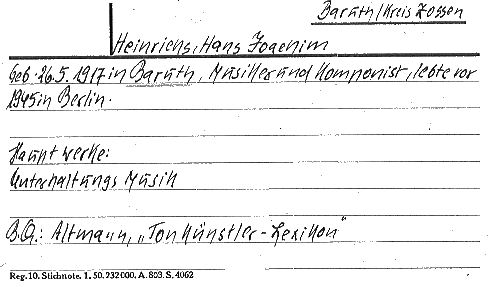 Baruth/Kreis Zossen
Heinriens, Hans Joachim
Geb. 26.5.1917 in Baruth, Musiker und Komponist, lebte vor
1945 in Berlin.
Hauptwerke:
Unterhaltungs Musik
B.Q.: Altmann, „Tonkünstler-Lexikon"
Reg. 10. Stichnote. 1. 50. 232000. A. 803. S. 4062